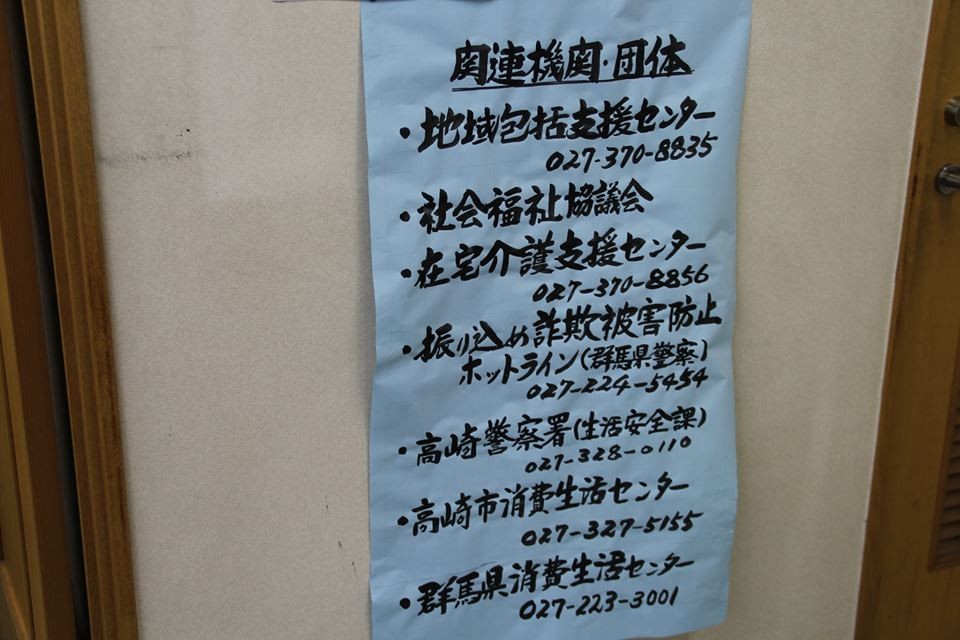 関連機関・団体
・地域包括支援センター
027-370-8835
・社会福祉協議会
・在宅介護支援センター
027-370-8856
・振り込め詐欺被害防止
ホットライン(群馬県警察)
027-224-5454
・高崎警察署(生活安全課)
027-328-0110
・高崎市消費生活センター
027-327-5155
・群馬県消費生活センター
027-223-3001